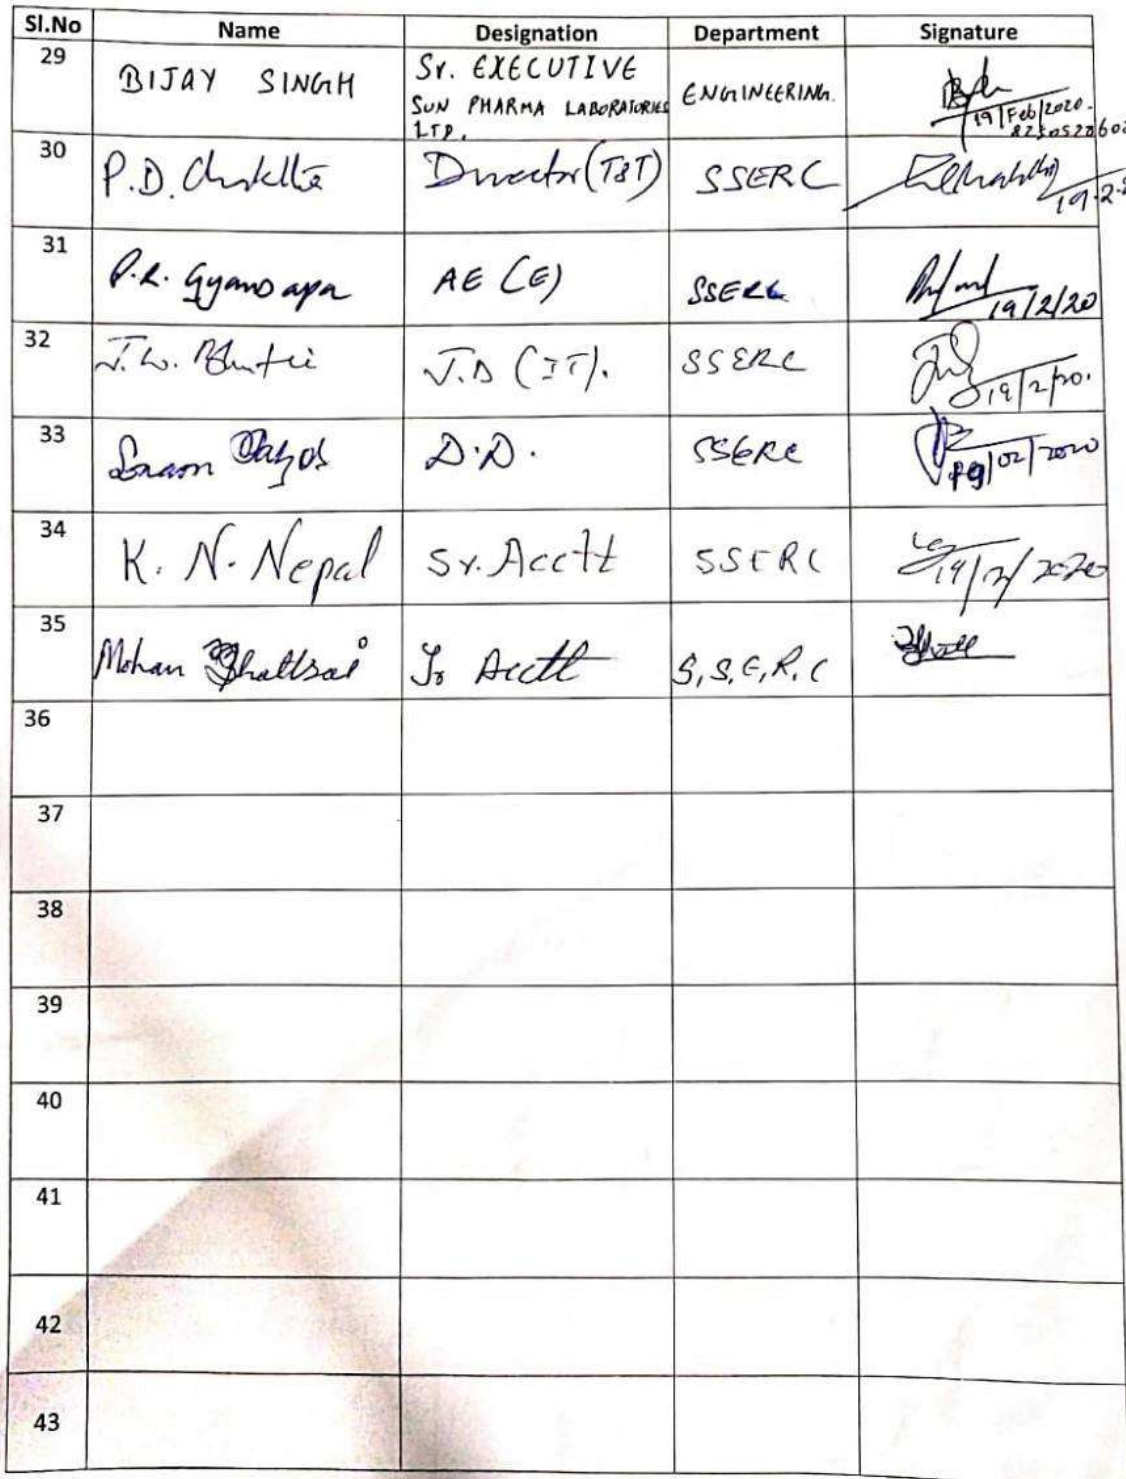 Sl.No Name Designation Department Signature
29 BIJAY SINGH Sr. EXECUTIVE SUN PHARMA LABORATORIES LTD. ENGINEERING. 19/Feb/2020.
30 P.D. Director (T&T) SSERC 19.2.2
31 P.R. AE (E) SSERC 19/2/20
32 J.D (IT). SSERC 19/2/20.
33 D.D. SSERC 19/02/2020
34 K. N. Nepal Sr. Acctt SSERC 19/2/2020
35 Mohan Jr Acctt S,S,E,R,C
36
37
38
39
40
41
42
43